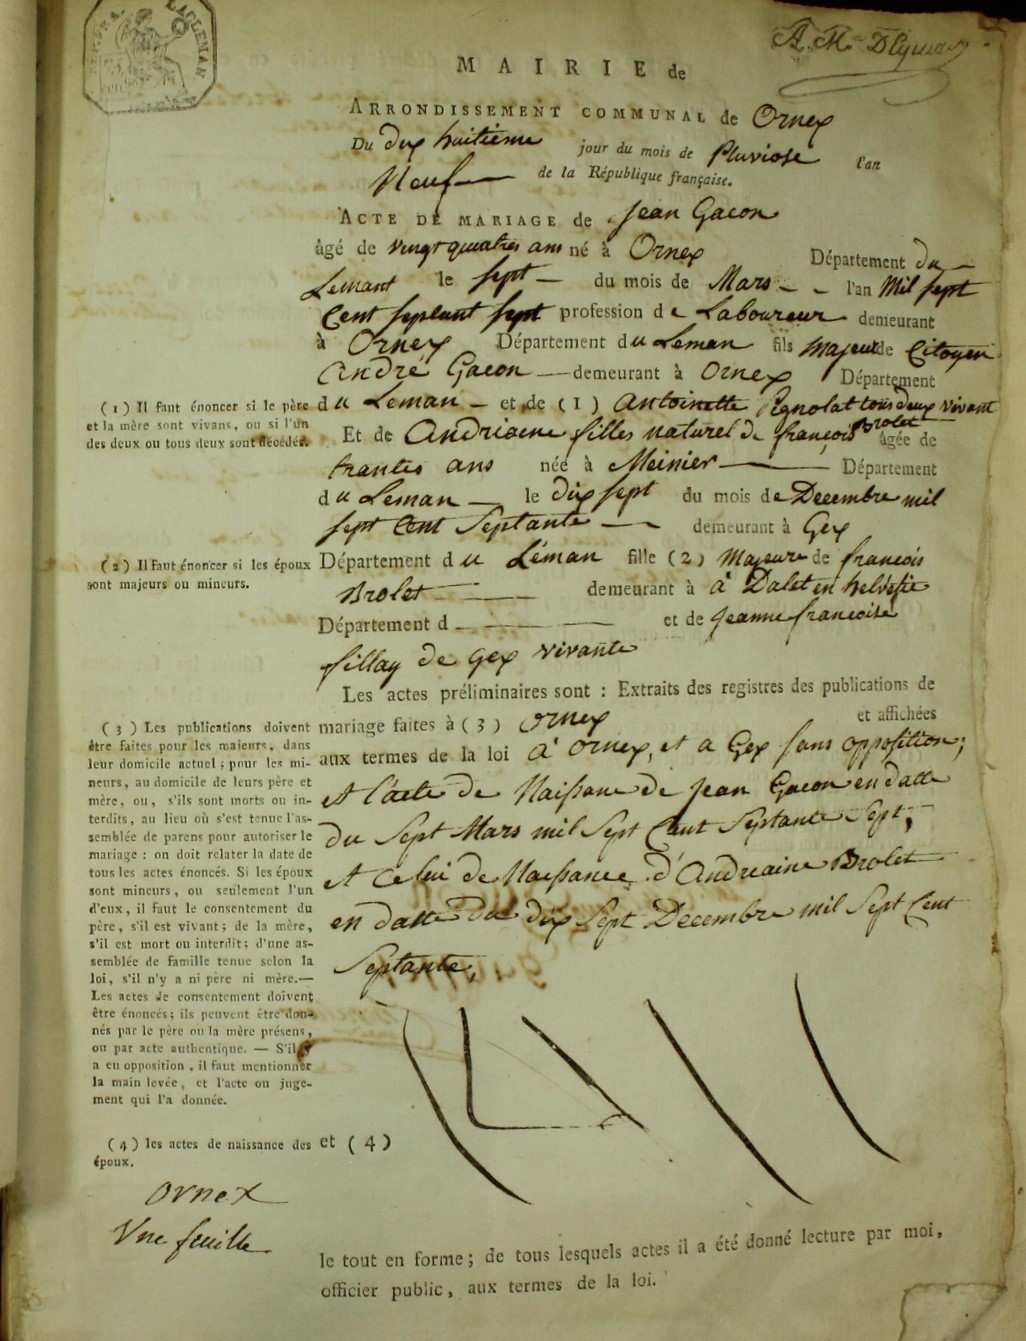 RÉP. FRA.
LEMAN
A. M.
MAIRIE de
ARRONDISSEMENT COMMUNAL de Ornex
Du dix huitième jour du mois de Pluviose l'an
Neuf de la République française.
ACTE DE MARIAGE de Jean Gacon
âgé de vingt quatres ans né à Ornex Département du
Lemant le sept du mois de Mars l'an Mil sept
Cent septant sept profession de Laboureur demeurant
à Ornex Département du Leman fils Majeur de Citoyen
André Gacon demeurant à Ornex Département
( 1 ) Il faut énoncer si le père
et la mère sont vivans, ou si l'un
des deux ou tous deux sont décédés.
du Leman et de (1) Antoinette tous deux vivant
Et de Andriaene filles naturel de françois Brolet âgée de
trantes ans née à Meinier Département
du Leman le dix sept du mois de Decembre mil
sept Cent Septante demeurant à Gex
( 2 ) Il Faut énoncer si les époux
sont majeurs ou mineurs.
Département du Léman fille (2) Majeure de francois
Brolet demeurant à à Dalet en helvétie
Département d et de Jeanne francoise
fillay de Gex vivante
Les actes préliminaires sont : Extraits des registres des publications de
mariage faites à ( 3 ) Ornex et affichées
aux termes de la loi à Ornex, et a Gex sans opposition;
et l'acte de Naissane de Jean Gacon en datte
du Sept Mars mil Sept Cent Septante Sept;
et Celui de Naissance d'Andriaine Brolet
en datte du dix Sept Decembre mil Sept Cent
Septante,
( 3 ) Les publications doivent
être faites pour les majeurs, dans
leur domicile actuel ; pour les mi-
neurs, au domicile de leurs père et
mère, ou, s'ils sont morts ou in-
terdits, au lieu où s'est tenue l'as-
semblée de parens pour autoriser le
mariage : on doit relater la date de
tous les actes énoncés. Si les époux
sont mineurs, ou seulement l'un
d'eux, il faut le consentement du
père, s'il est vivant; de la mère,
s'il est mort ou interdit; d'une as-
semblée de famille tenue selon la
loi, s'il n'y a ni père ni mère.—
Les actes de consentement doivent
être énoncés; ils peuvent être don-
nés par le père ou la mère présens,
ou par acte authentique. — S'il y
a eu opposition, il faut mentionner
la main levée, et l'acte ou juge-
ment qui l'a donnée.
( 4 ) les actes de naissance des
époux.
et ( 4 )
Ornex
Une feuille
le tout en forme; de tous lesquels actes il a été donné lecture par moi,
officier public, aux termes de la loi.